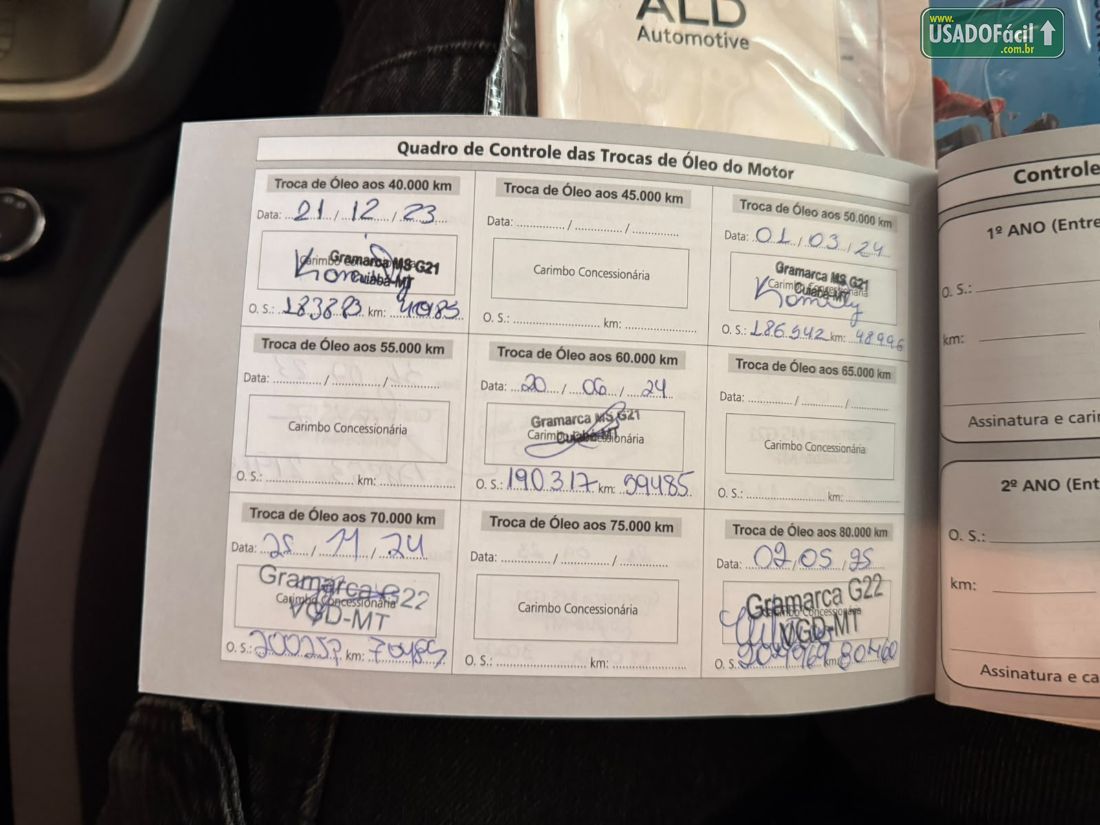 ALD
Automotive
www.
USADOFácil
.com.br
Quadro de Controle das Trocas de Óleo do Motor
Troca de Óleo aos 40.000 km
Data: 21 / 12 / 23
Gramarca MS G21
Carimbo Concessionária
Cuiabá-MT
O. S.: 183883 km: 40985
Troca de Óleo aos 45.000 km
Data: / /
Carimbo Concessionária
O. S.: km:
Troca de Óleo aos 50.000 km
Data: 01 / 03 / 24
Gramarca MS G21
Carimbo Concessionária
Cuiabá-MT
O. S.: 186.542 km: 48996
Troca de Óleo aos 55.000 km
Data: / /
Carimbo Concessionária
O. S.: km:
Troca de Óleo aos 60.000 km
Data: 20 / 06 / 24
Gramarca MS G21
Carimbo Concessionária
Cuiabá-MT
O. S.: 190317 km: 59485
Troca de Óleo aos 65.000 km
Data: / /
Carimbo Concessionária
O. S.: km:
Troca de Óleo aos 70.000 km
Data: 25 / 11 / 24
Gramarca G22
Carimbo Concessionária
VGD-MT
O. S.: 200257 km: 70485
Troca de Óleo aos 75.000 km
Data: / /
Carimbo Concessionária
O. S.: km:
Troca de Óleo aos 80.000 km
Data: 02 / 05 / 25
Gramarca G22
Carimbo Concessionária
VGD-MT
O. S. km 80460
Controle
1º ANO (Entre
O. S.:
km:
Assinatura e cari
2º ANO (Ent
O. S.:
km:
Assinatura e ca